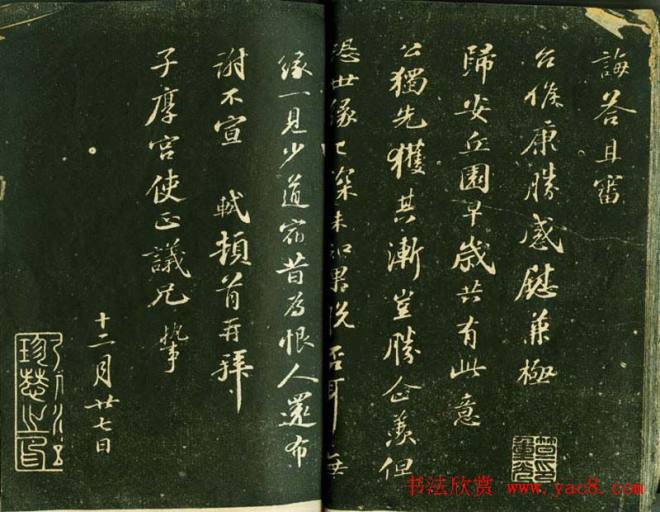 誨答且審
台候康勝感慰兼極
歸安丘園早歲共有此意
公獨先獲其漸豈勝企羨但
恐世緣已深未知果脫否耳無
緣一見少道宿昔為恨人還布
謝不宣 軾頓首再拜
子厚宮使正議兄執事
十二月廿七日
書法欣賞 www.yac8.com